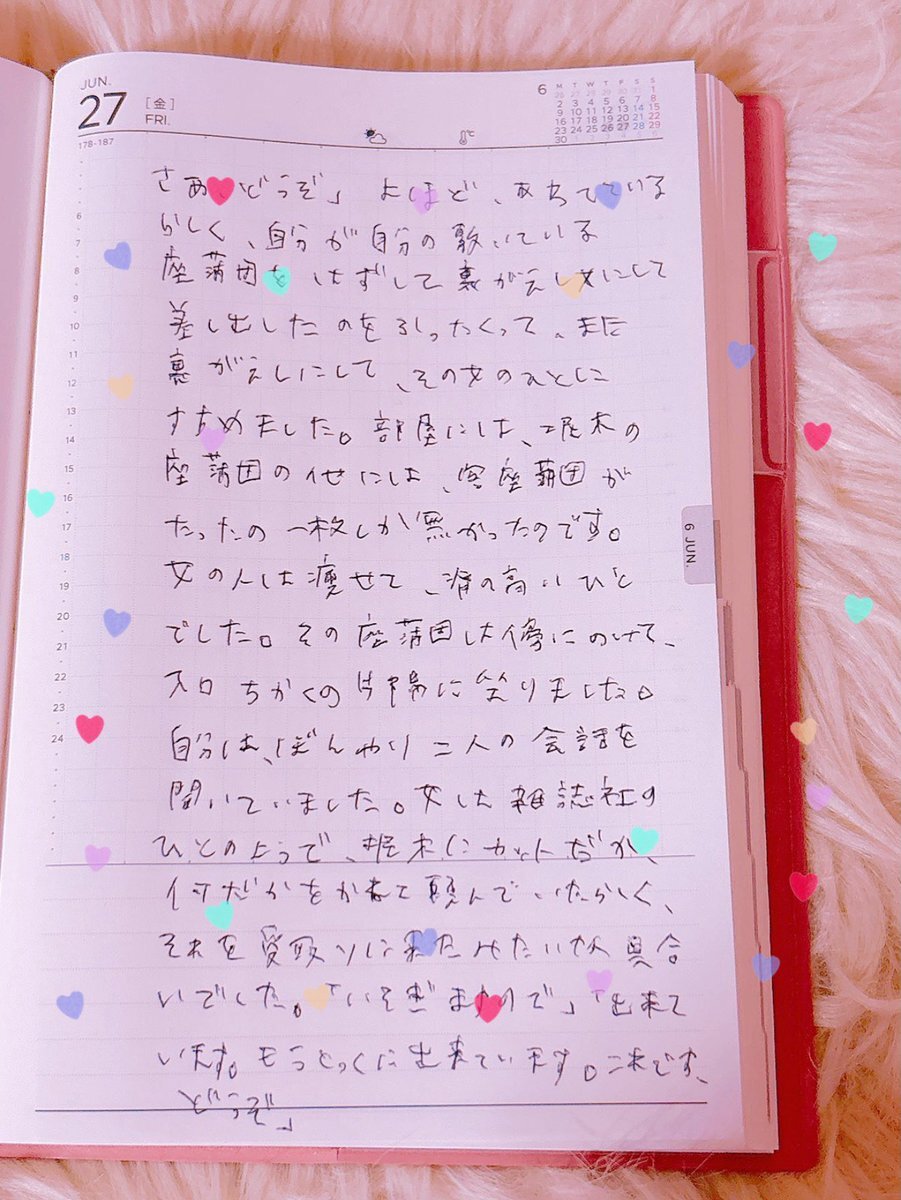 JUN.
27 [金]
FRI.
178-187
6
M T W T F S S
26 27 28 29 30 31 1
2 3 4 5 6 7 8
9 10 11 12 13 14 15
16 17 18 19 20 21 22
23 24 25 26 27 28 29
30
さあ、どうぞ」よほど、あわてている
らしく、自分が自分の敷いている
座蒲団をはずして裏がえしにして
差し出したのをひったくって、また
裏がえしにして、その女のひとに
すすめました。部屋には、堀木の
座蒲団の他には、客座蒲団が
たったの一枚しか無かったのです。
女の人は痩せて、脊の高いひと
でした。その座蒲団は傍にのけて、
入口ちかくの片隅に坐りました。
自分は、ぼんやり二人の会話を
聞いていました。女は雑誌社の
ひとのようで、堀木にカットだか、
何だかをかねて頼んでいたらしく、
それを受取りに来たみたいな具合
いでした。「いそぎますので」「出来て
います。もうとっくに出来ています。これです、
どうぞ」
6
7
8
9
10
11
12
13
14
15
16
17
18
19
20
21
22
23
24
6 JUN.